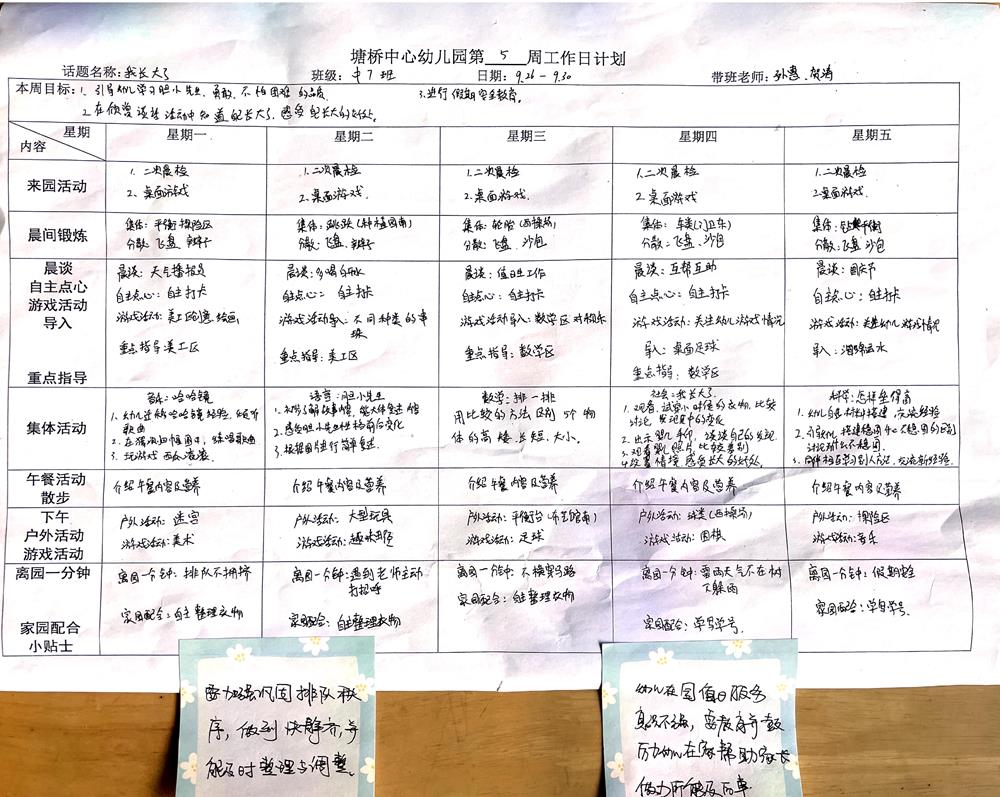 塘桥中心幼儿园第 5 周工作日计划
话题名称:我长大了 班级:中7班 日期:9.26-9.30 带班老师:孙慧、
本周目标:1. 引导幼儿学习胆小先生,勇敢、不怕困难的品质 3.进行假期安全教育。
2.在欣赏谈话活动中知道自己长大了,感受自己长大的好处。
星期 内容 星期一 星期二 星期三 星期四 星期五
来园活动
1.二次晨检
2.桌面游戏
1.二次晨检
2.桌面游戏.
1.二次晨检
2.桌面游戏.
1.二次晨检
2.桌面游戏
1.二次晨检
2.桌面游戏.
晨间锻炼
集体:平衡探险区
分散:飞盘、
集体:跳跃(种植园南)
分散:飞盘、
集体:轮胎(西操场)
分散:飞盘、沙包
集体:车类(门卫东)
分散:飞盘、沙包
集体:平衡
分散:飞盘 沙包
晨谈
自主点心
游戏活动
导入
重点指导
晨谈:天气播报员
自主点心:自主打卡
游戏活动:美工区创意绘画,
重点指导:美工区
晨谈:多喝白开水
自主点心:自主打卡
游戏活动导入:不同种类的串
珠
重点指导:美工区
晨谈:值日生工作
自主点心:自主打卡
游戏活动导入:数学区对物乐
重点指导:数学区
晨谈:互帮互助
自主点心:自主打卡
游戏活动:关注幼儿游戏情况
导入:桌面足球
重点指导:数学区
晨谈:国庆节
自主点心:自主打卡
游戏活动:关注幼儿游戏情况
导入:
集体活动
音乐:哈哈镜
1.幼儿迁移哈哈镜经验,
歌曲
2.在 图中,练唱歌曲
3.玩游戏
语言:胆小先生
1.初步了解故事情,能大体复述 情
2.感受胆小先生性格前后变化
3.根据图片进行简单复述.
数学:排一排
用比较的方法区别5个物
体的高矮、长短、大小。
社会:我长大了.
1.观看、试穿小时候的衣物,比较
讨论,发现其中的变化
2.出示婴儿手印,谈谈自己的发现.
3.观看婴儿照片,比较差别
4.设置情境,感受长大的好处。
科学:怎样垒得高
1.幼儿自选材料搭建,交流经验
2.引导幼儿,搭建稳固和不稳固的区别
讨论为什么不稳固
3.同伴相互学习别人方法,交流新经验.
午餐活动
散步
介绍午餐内容及营养
介绍午餐内容及营养
介绍午餐内容及营养
介绍午餐内容及营养
介绍午餐内容及营养
下午
户外活动
游戏活动
户外活动:迷宫
游戏活动:美术
户外活动:大型玩具
游戏活动:趣味
户外活动:平衡台( 南)
游戏活动:足球
户外活动:球类(西操场)
游戏活动:围棋
户外活动:探险区
游戏活动:音乐
离园一分钟
家园配合
小贴士
离园一分钟:排队不拥挤
家园配合:自主整理衣物
离园一分钟:遇到老师主动
打招呼
家园配合:自主整理衣物
离园一分钟:不横穿马路
家园配合:自主整理衣物
离园一分钟:雷雨天气不在树
下躲雨
家园配合:学写学号.
离园一分钟:假期安全
家园配合:学写学号.
要加强巩固排队秩
序,做到快静齐,并
能及时整理与调整。
幼儿在园值日服务
意识不强,要教育并鼓
励幼儿在家帮助家长
做力所能及的事